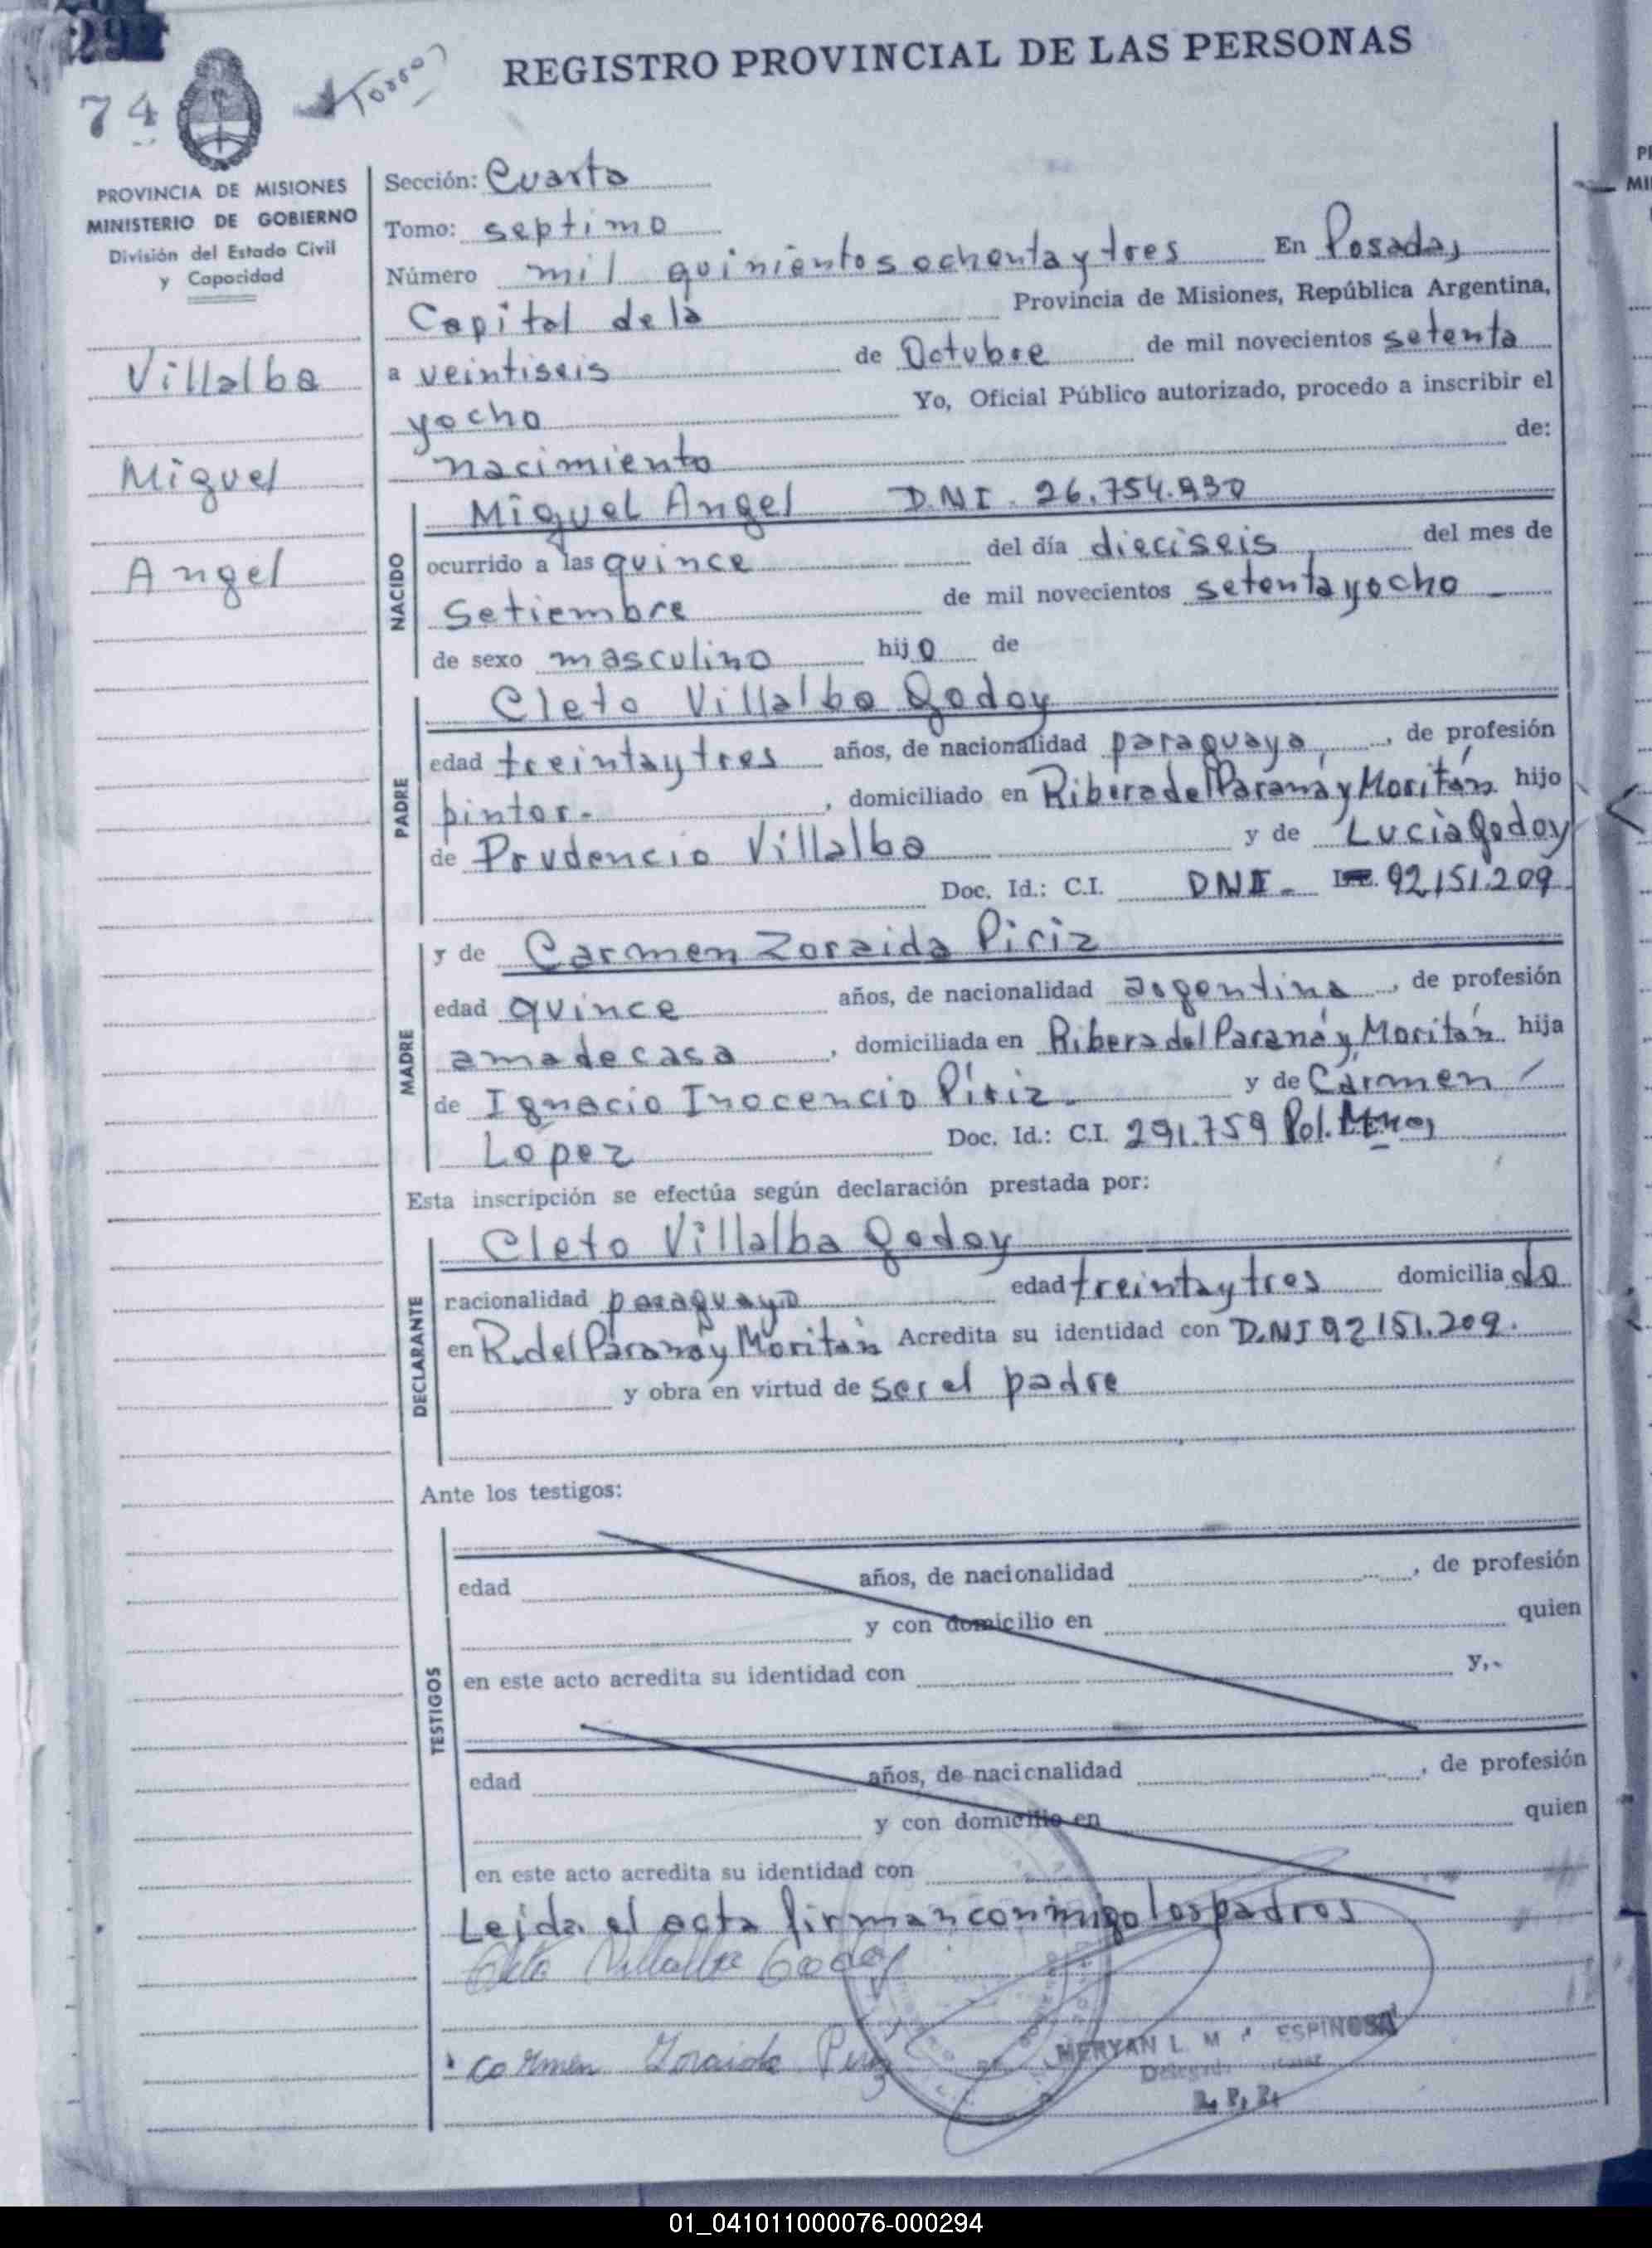 291
74
Torso
REGISTRO PROVINCIAL DE LAS PERSONAS
PROVINCIA DE MISIONES
MINISTERIO DE GOBIERNO
División del Estado Civil
y Capacidad
Villalba
Miguel
Angel
Sección: Cuarta
Tomo: septimo
Número mil quinientos ochenta y tres En Posadas
Capital de la Provincia de Misiones, República Argentina,
a veintiseis de Octubre de mil novecientos setenta
y ocho Yo, Oficial Público autorizado, procedo a inscribir el
nacimiento de:
NACIDO
Miguel Angel D.N.I. 26.754.930
ocurrido a las quince del día dieciseis, del mes de
Setiembre de mil novecientos setenta y ocho
de sexo masculino hijo de
PADRE
Cleto Villalba Godoy
edad treinta y tres años, de nacionalidad paraguaya, de profesión
pintor. , domiciliado en Ribera del Paraná y Moritán hijo
de Prudencio Villalba y de Lucia Godoy
Doc. Id.: C.I. DNI. 92.151.209
MADRE
y de Carmen Zoraida Piriz
edad quince años, de nacionalidad argentina, de profesión
ama de casa, domiciliada en Ribera del Paraná y Moritán hija
de Ignacio Inocencio Píriz. y de Carmen
Lopez Doc. Id.: C.I. 291.759 Pol. Mnes
Esta inscripción se efectúa según declaración prestada por:
DECLARANTE
Cleto Villalba Godoy
racionalidad paraguayo edad treinta y tres domiciliado
en R. del Paraná y Moritán Acredita su identidad con D.NI 92 151.209.
y obra en virtud de ser el padre
Ante los testigos:
TESTIGOS
edad años, de nacionalidad , de profesión
y con domicilio en quien
en este acto acredita su identidad con y,-
edad años, de nacicnalidad , de profesión
y con domicilio en quien
en este acto acredita su identidad con
Leida el acta firman conmigo los padres
Cleto Villalba Godoy
Carmen Zoraida Piriz
MERYAN L. M ESPINOSA
01_041011000076-000294